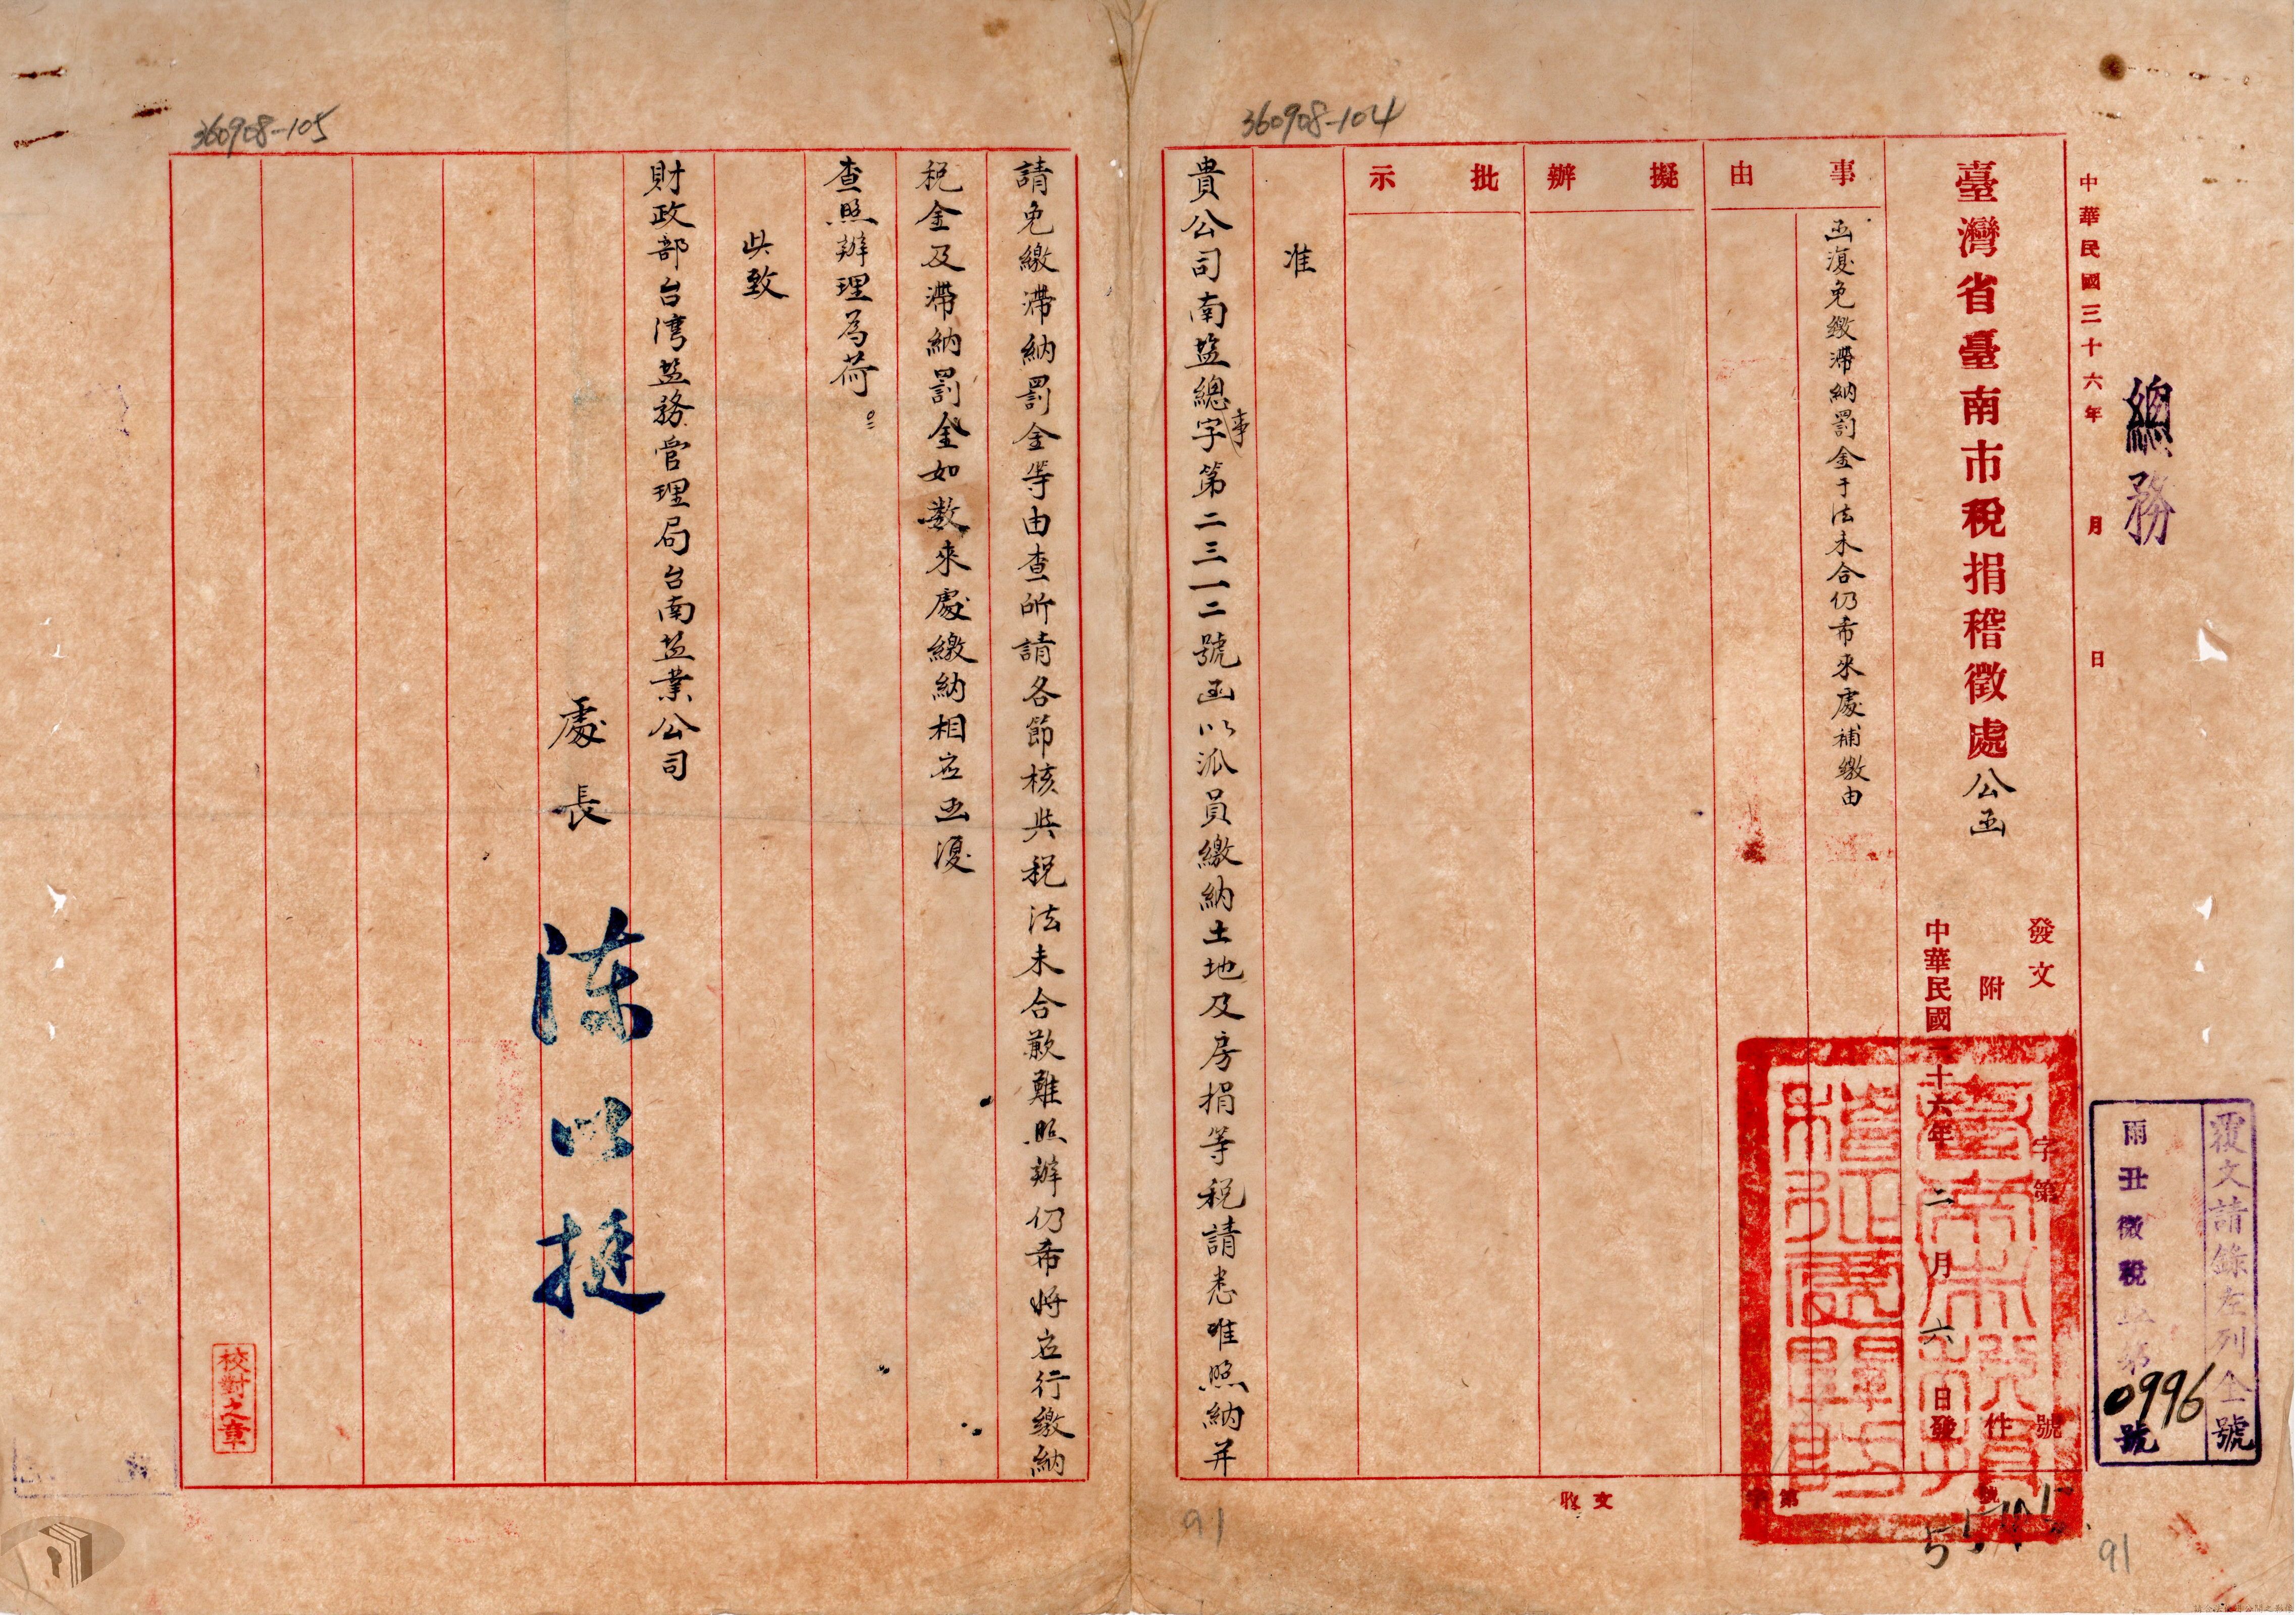 360908-104
360908-105
總務
中華民國三十六年 月 日
覆文請錄左列全號
雨丑徵稅
0996號
臺灣省臺南市稅捐稽徵處公函
發文 字第 號
附 件
中華民國三十六年二月六日發
事由
函復免繳滯納罰金于法未合仍希來處補繳由
擬辦
批示
准
貴公司南盐總事字第二三一二號函以派員繳納土地及房捐等稅請悉唯照納并
請免繳滯納罰金等由查所請各節核與稅法未合歉難照辦仍希將应行繳納
稅金及滯納罰金如数來處繳納相应函復
查照辦理為荷
此致
財政部台湾盐務管理局台南盐業公司
處長 陳以挺
校對之章
收文 字第 號
91
91